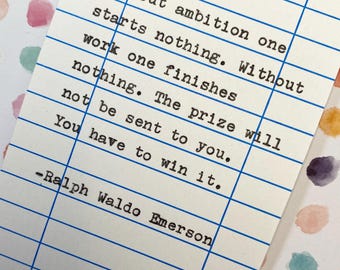 ambition one
starts nothing. Without
work one finishes
nothing. The prize will
not be sent to you.
You have to win it.
-Ralph Waldo Emerson